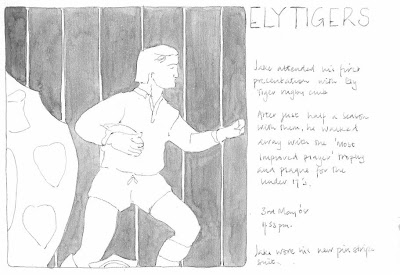 ELY TIGERS
Luke attended his first
presentation with Ely
Tiger Rugby Club
After just half a season
with them, he walked
away with the 'Most
Improved Player' trophy
and plaque for the
Under 17's.
3rd May
Luke wore his new pin stripe
suit...